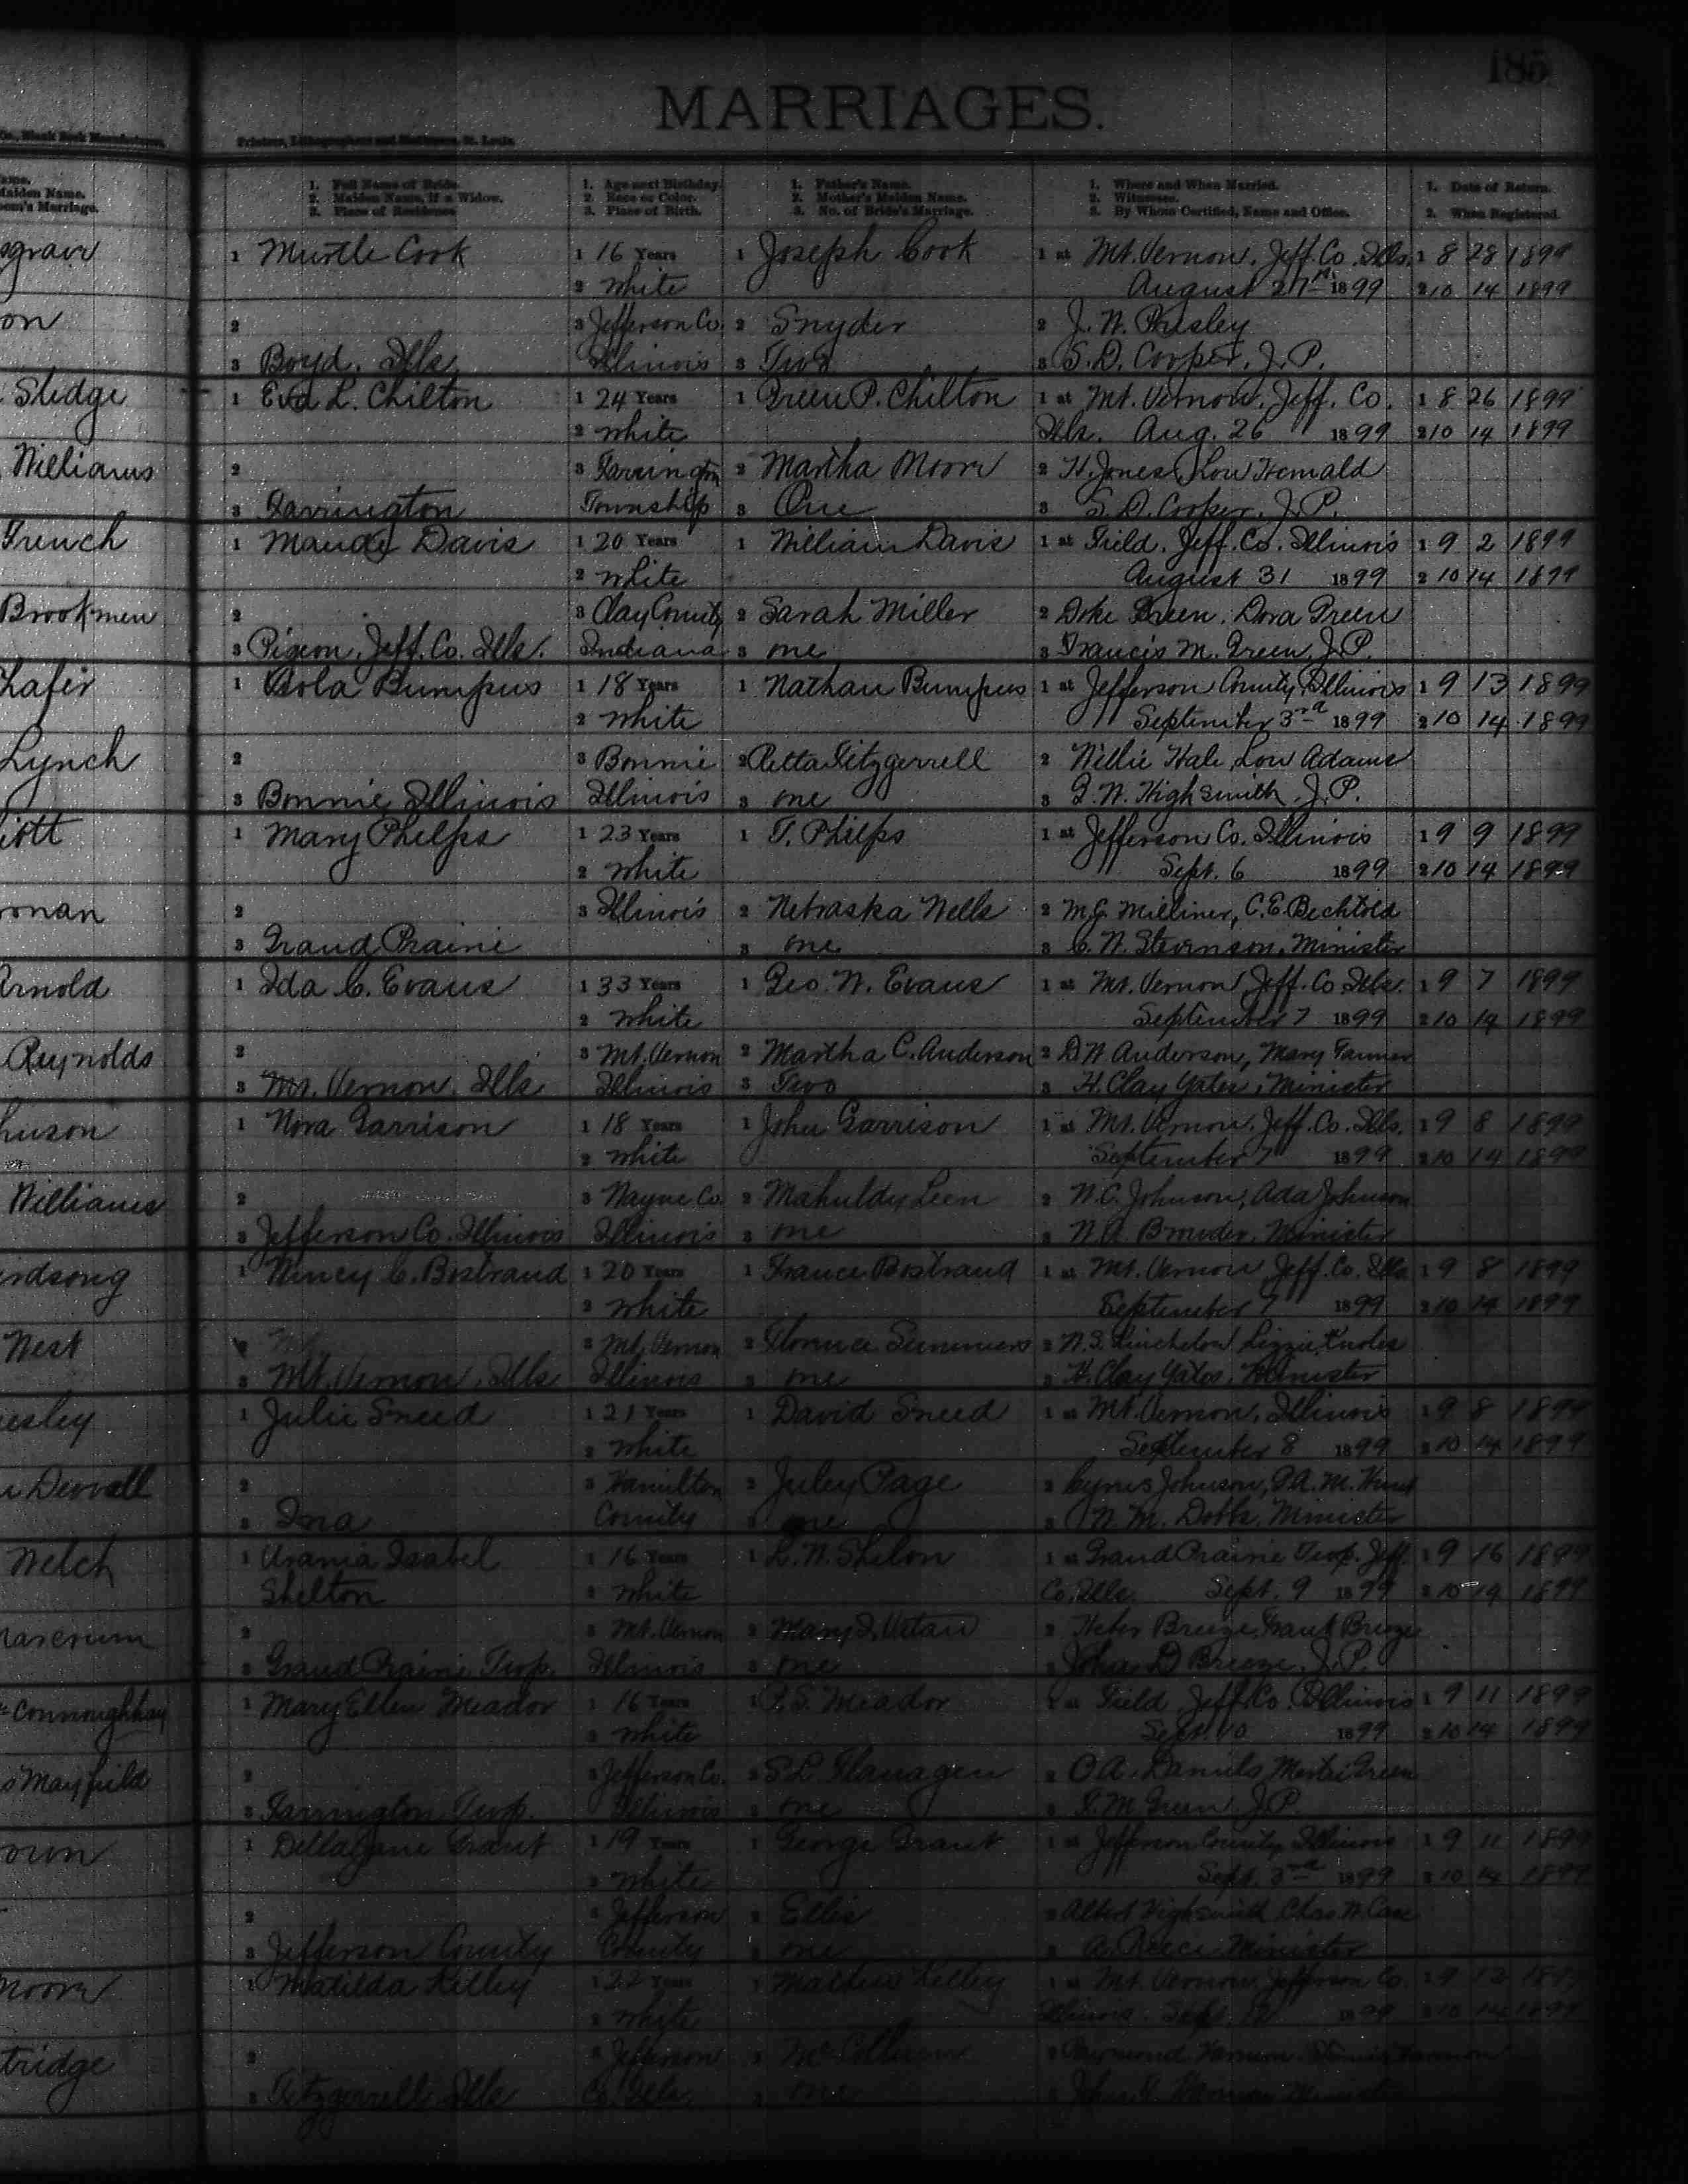 185
MARRIAGES.
Co., Blank Book Manufacturers,
Printers, Lithographers and Stationers, St. Louis.
Name.
Maiden Name.
Groom's Marriage.
1. Full Name of Bride.
2. Maiden Name, if a Widow.
3. Place of Residence
1. Age next Birthday.
2. Race or Color.
3. Place of Birth.
1. Father's Name.
2. Mother's Maiden Name.
3. No. of Bride's Marriage.
1. Where and When Married.
2. Witnesses.
3. By Whom Certified, Name and Office.
1. Date of Return.
2. When Registered.
sgrave 1 Myrtle Cook 1 16 Years 1 Joseph Cook 1 at Mt. Vernon, Jeff. Co. Ills. 1 8 28 1899
2 White August 27 1899 2 10 14 1899
on 2 3 Jefferson Co. 2 Snyder 2 J. W. Presley
3 Boyd, Ills. Illinois 3 Two 3 S. D. Cooper, J.P.
Sledge 1 Eva L. Chilton 1 24 Years 1 Green P. Chilton 1 at Mt. Vernon, Jeff. Co. 1 8 26 1899
2 White Ills. Aug. 26 1899 2 10 14 1899
Williams 2 3 Farrington 2 Martha Moore 2 H. Jones, Lou
3 Farrington Township 3 One 3 S. D. Cooper, J.P.
French 1 Maude Davis 1 20 Years 1 William Davis 1 at Field, Jeff. Co. Illinois 1 9 2 1899
2 White August 31 1899 2 10 14 1899
Brookmen 2 3 Clay County 2 Sarah Miller 2 Green, Dora Green
3 Pigeon, Jeff. Co. Ills. Indiana 3 one 3 Francis M. Green, J.P.
hafer 1 Bumpus 1 18 Years 1 Nathan Bumpus 1 at Jefferson County, Illinois 1 9 13 1899
2 White September 3rd 1899 2 10 14 1899
Lynch 2 3 Bonnie 2 Retta Fitzgerrell 2 Willie Hale, Lou Adams
3 Bonnie Illinois Illinois 3 one 3 G. W. Highsmith, J.P.
iott 1 Mary Phelps 1 23 Years 1 T. Phelps 1 at Jefferson Co. Illinois 1 9 9 1899
2 White Sept. 6 1899 2 10 14 1899
onan 2 3 Illinois 2 Nebraska Wells 2 M.G. Milliner, C.E. Bechtold
3 Grand Prairie 3 one 3 C. W. Stevenson, Minister
Arnold 1 Ida C. Evans 1 33 Years 1 Geo. W. Evans 1 at Mt. Vernon, Jeff. Co. Ills. 1 9 7 1899
2 White September 7 1899 2 10 14 1899
Reynolds 2 3 Mt. Vernon 2 Martha C. Anderson 2 D W Anderson, Mary Farmer
3 Mt. Vernon, Ills Illinois 3 Two 3 H. Clay Yates, Minister
hnson 1 Nora Garrison 1 18 Years 1 John Garrison 1 at Mt. Vernon, Jeff. Co. Ills. 1 9 8 1899
2 White September 7 1899 2 10 14 1899
Williams 2 3 Wayne Co. 2 Mahuldy Leen 2 W. C. Johnson, Ada Johnson
3 Jefferson Co. Illinois Illinois 3 one 3 Minister
irdsong 1 C. Bostrand 1 20 Years 1 France Bostrand 1 at Mt. Vernon, Jeff. Co. Ills 1 9 8 1899
2 White September 7 1899 2 10 14 1899
West 3 Mt. Vernon 2 Florence Summers 2 Lizzie Knoles
3 Mt. Vernon, Ills Illinois 3 one 3 H. Clay Yates, Minister
esley 1 Julie Sneed 1 21 Years 1 David Sneed 1 at Mt. Vernon, Illinois 1 9 8 1899
2 White September 8 1899 2 10 14 1899
2 3 Hamilton 2 Juley Page 2 Cyrus Johnson,
3 Ina County 3 one 3 W. M. Dobbs, Minister
Welch 1 Urania Isabel 1 16 Years 1 L. W. Shelon 1 at Grand Prairie Twp. Jeff. 1 9 16 1899
Shelton 2 White Co. Ills. Sept. 9 1899 2 10 14 1899
2 3 Mt. Vernon 2 2 Heber Breeze, Grant Breeze
3 Grand Prairie Twp. Illinois 3 one 3 John D Breeze, J.P.
Connoughhay 1 Mary Ellen Meador 1 16 Years 1 Meador 1 at Field Jeff. Co. Illinois 1 9 11 1899
2 White Sept. 10 1899 2 10 14 1899
Mayfield 2 3 Jefferson Co. 2 S L Flanagen 2 O A. Daniels, Green
3 Farrington Twp. Illinois 3 one 3 F. M Green J.P.
own 1 Della Jane Grant 1 19 Years 1 George Grant 1 at Jefferson County, Illinois 1 9 11 1899
2 White Sept. 3rd 1899 2 10 14 1899
2 3 Jefferson 2 Ellis 2 Albert Highsmith, Chas W. Case
3 Jefferson County County 3 one 3 A. Reece Minister
Moore 1 Matilda Kelley 1 22 Years 1 Kelley 1 at Mt. Vernon, Jefferson Co.
2 White Illinois. Sept. 12 1899 2 10 14 1899
tridge 2 3 Jefferson
3 Fitzgerrell, Ills Co. Ills. 3 one 3 Minister